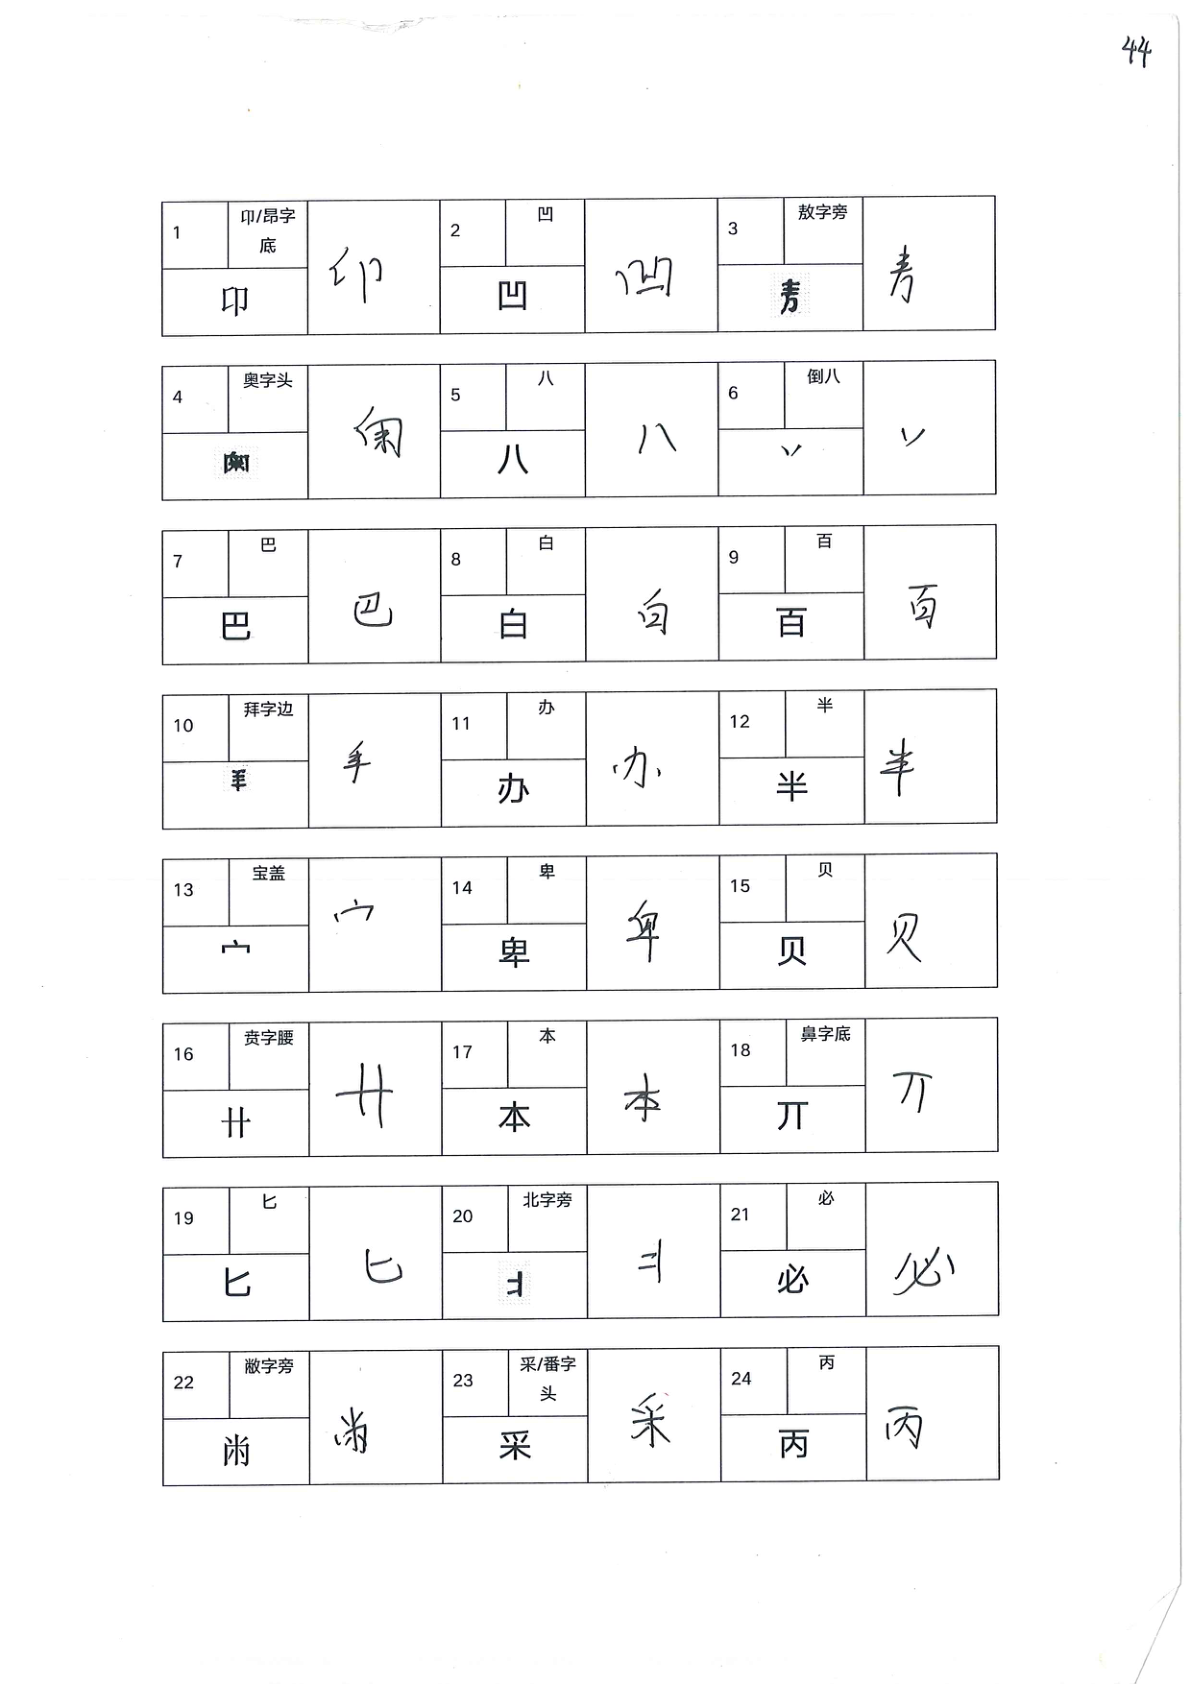 44
1 卬/昂字底 卬 卬 2 凹 凹 凹 3 敖字旁
4 奥字头 5 八 八 八 6 倒八 丷 丷
7 巴 巴 巴 8 白 白 白 9 百 百 百
10 拜字边 手 11 办 办 办 12 半 半 半
13 宝盖 宀 宀 14 卑 卑 卑 15 贝 贝 贝
16 贲字腰 卄 卄 17 本 本 本 18 鼻字底 丌 丌
19 匕 匕 匕 20 北字旁 21 必 必 必
22 敝字旁 㡀 㡀 23 采/番字头 采 采 24 丙 丙 丙